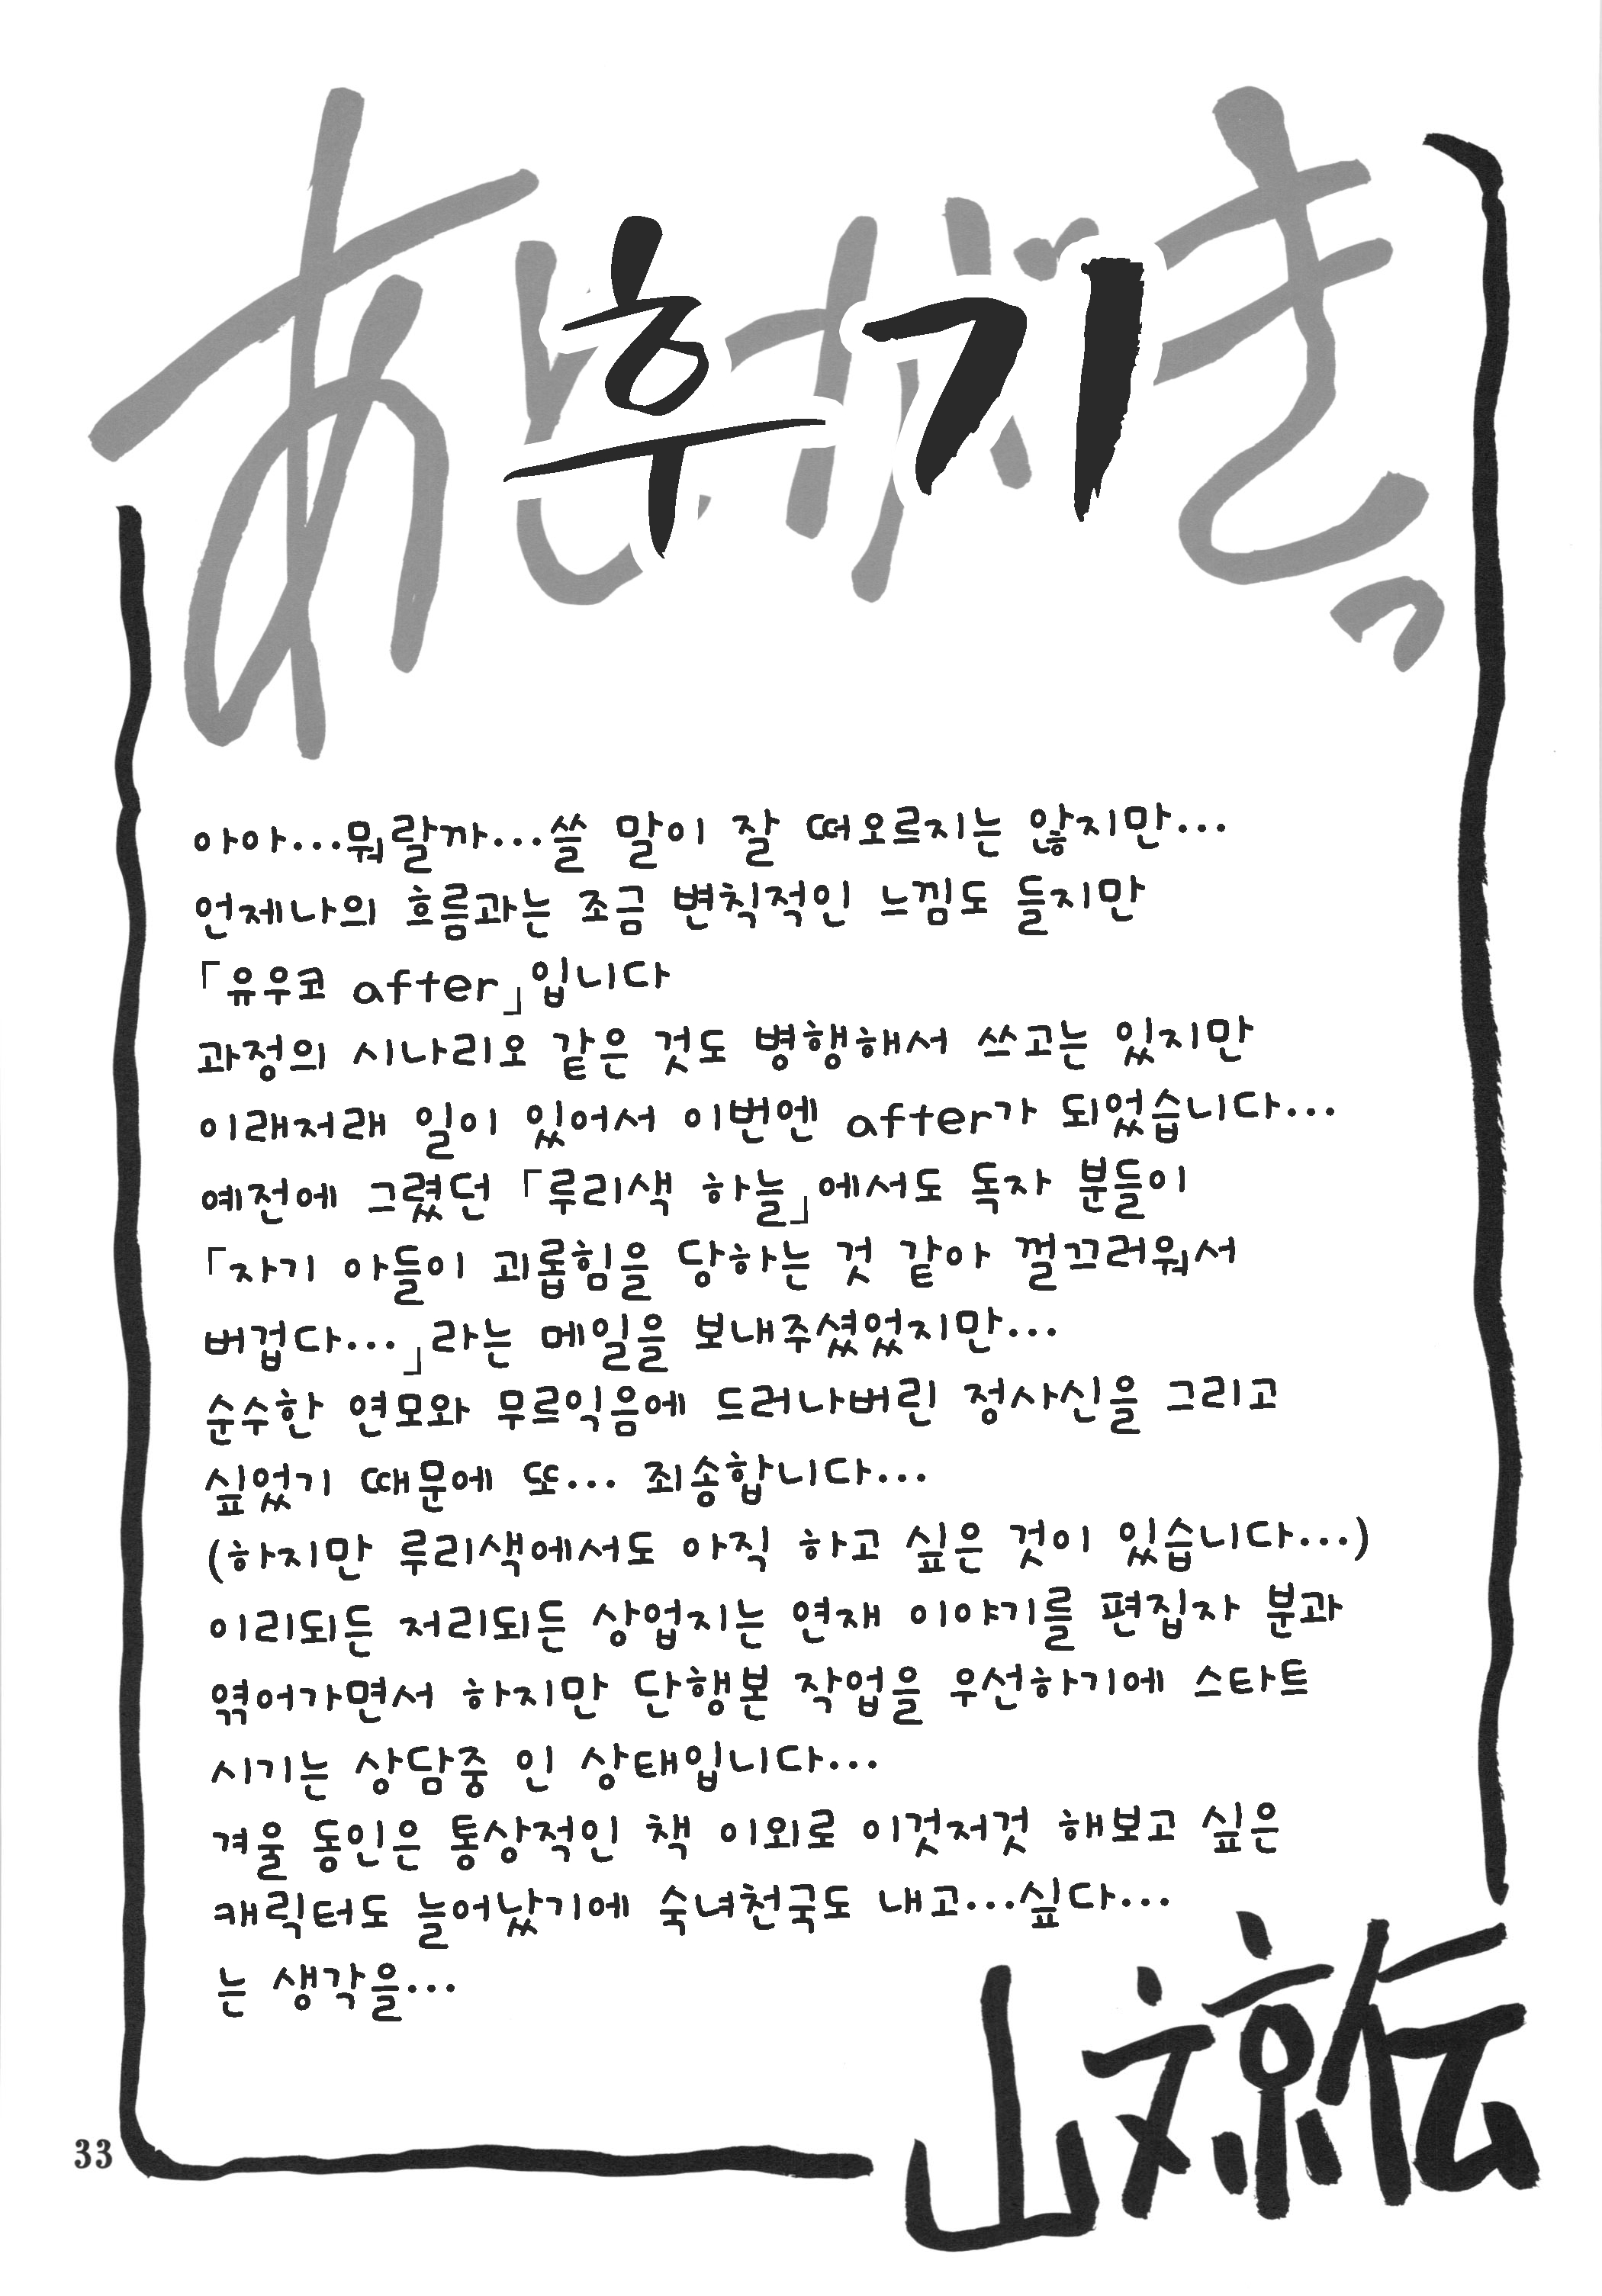 あとがき。
후기
아아...뭐랄까...쓸 말이 잘 떠오르지는 않지만...
언제나의 흐름과는 조금 변칙적인 느낌도 들지만
「유우코 after」입니다
과정의 시나리오 같은 것도 병행해서 쓰고는 있지만
이래저래 일이 있어서 이번엔 after가 되었습니다...
예전에 그렸던 「루리색 하늘」에서도 독자 분들이
「자기 아들이 괴롭힘을 당하는 것 같아 껄끄러워서
버겁다...」라는 메일을 보내주셨었지만...
순수한 연모와 무르익음에 드러나버린 정사신을 그리고
싶었기 때문에 또... 죄송합니다...
(하지만 루리색에서도 아직 하고 싶은 것이 있습니다...)
이리되든 저리되든 상업지는 연재 이야기를 편집자 분과
엮어가면서 하지만 단행본 작업을 우선하기에 스타트
시기는 상담중 인 상태입니다...
겨울 동인은 통상적인 책 이외로 이것저것 해보고 싶은
캐릭터도 늘어났기에 숙녀천국도 내고...싶다...
는 생각을...
山文京伝
33